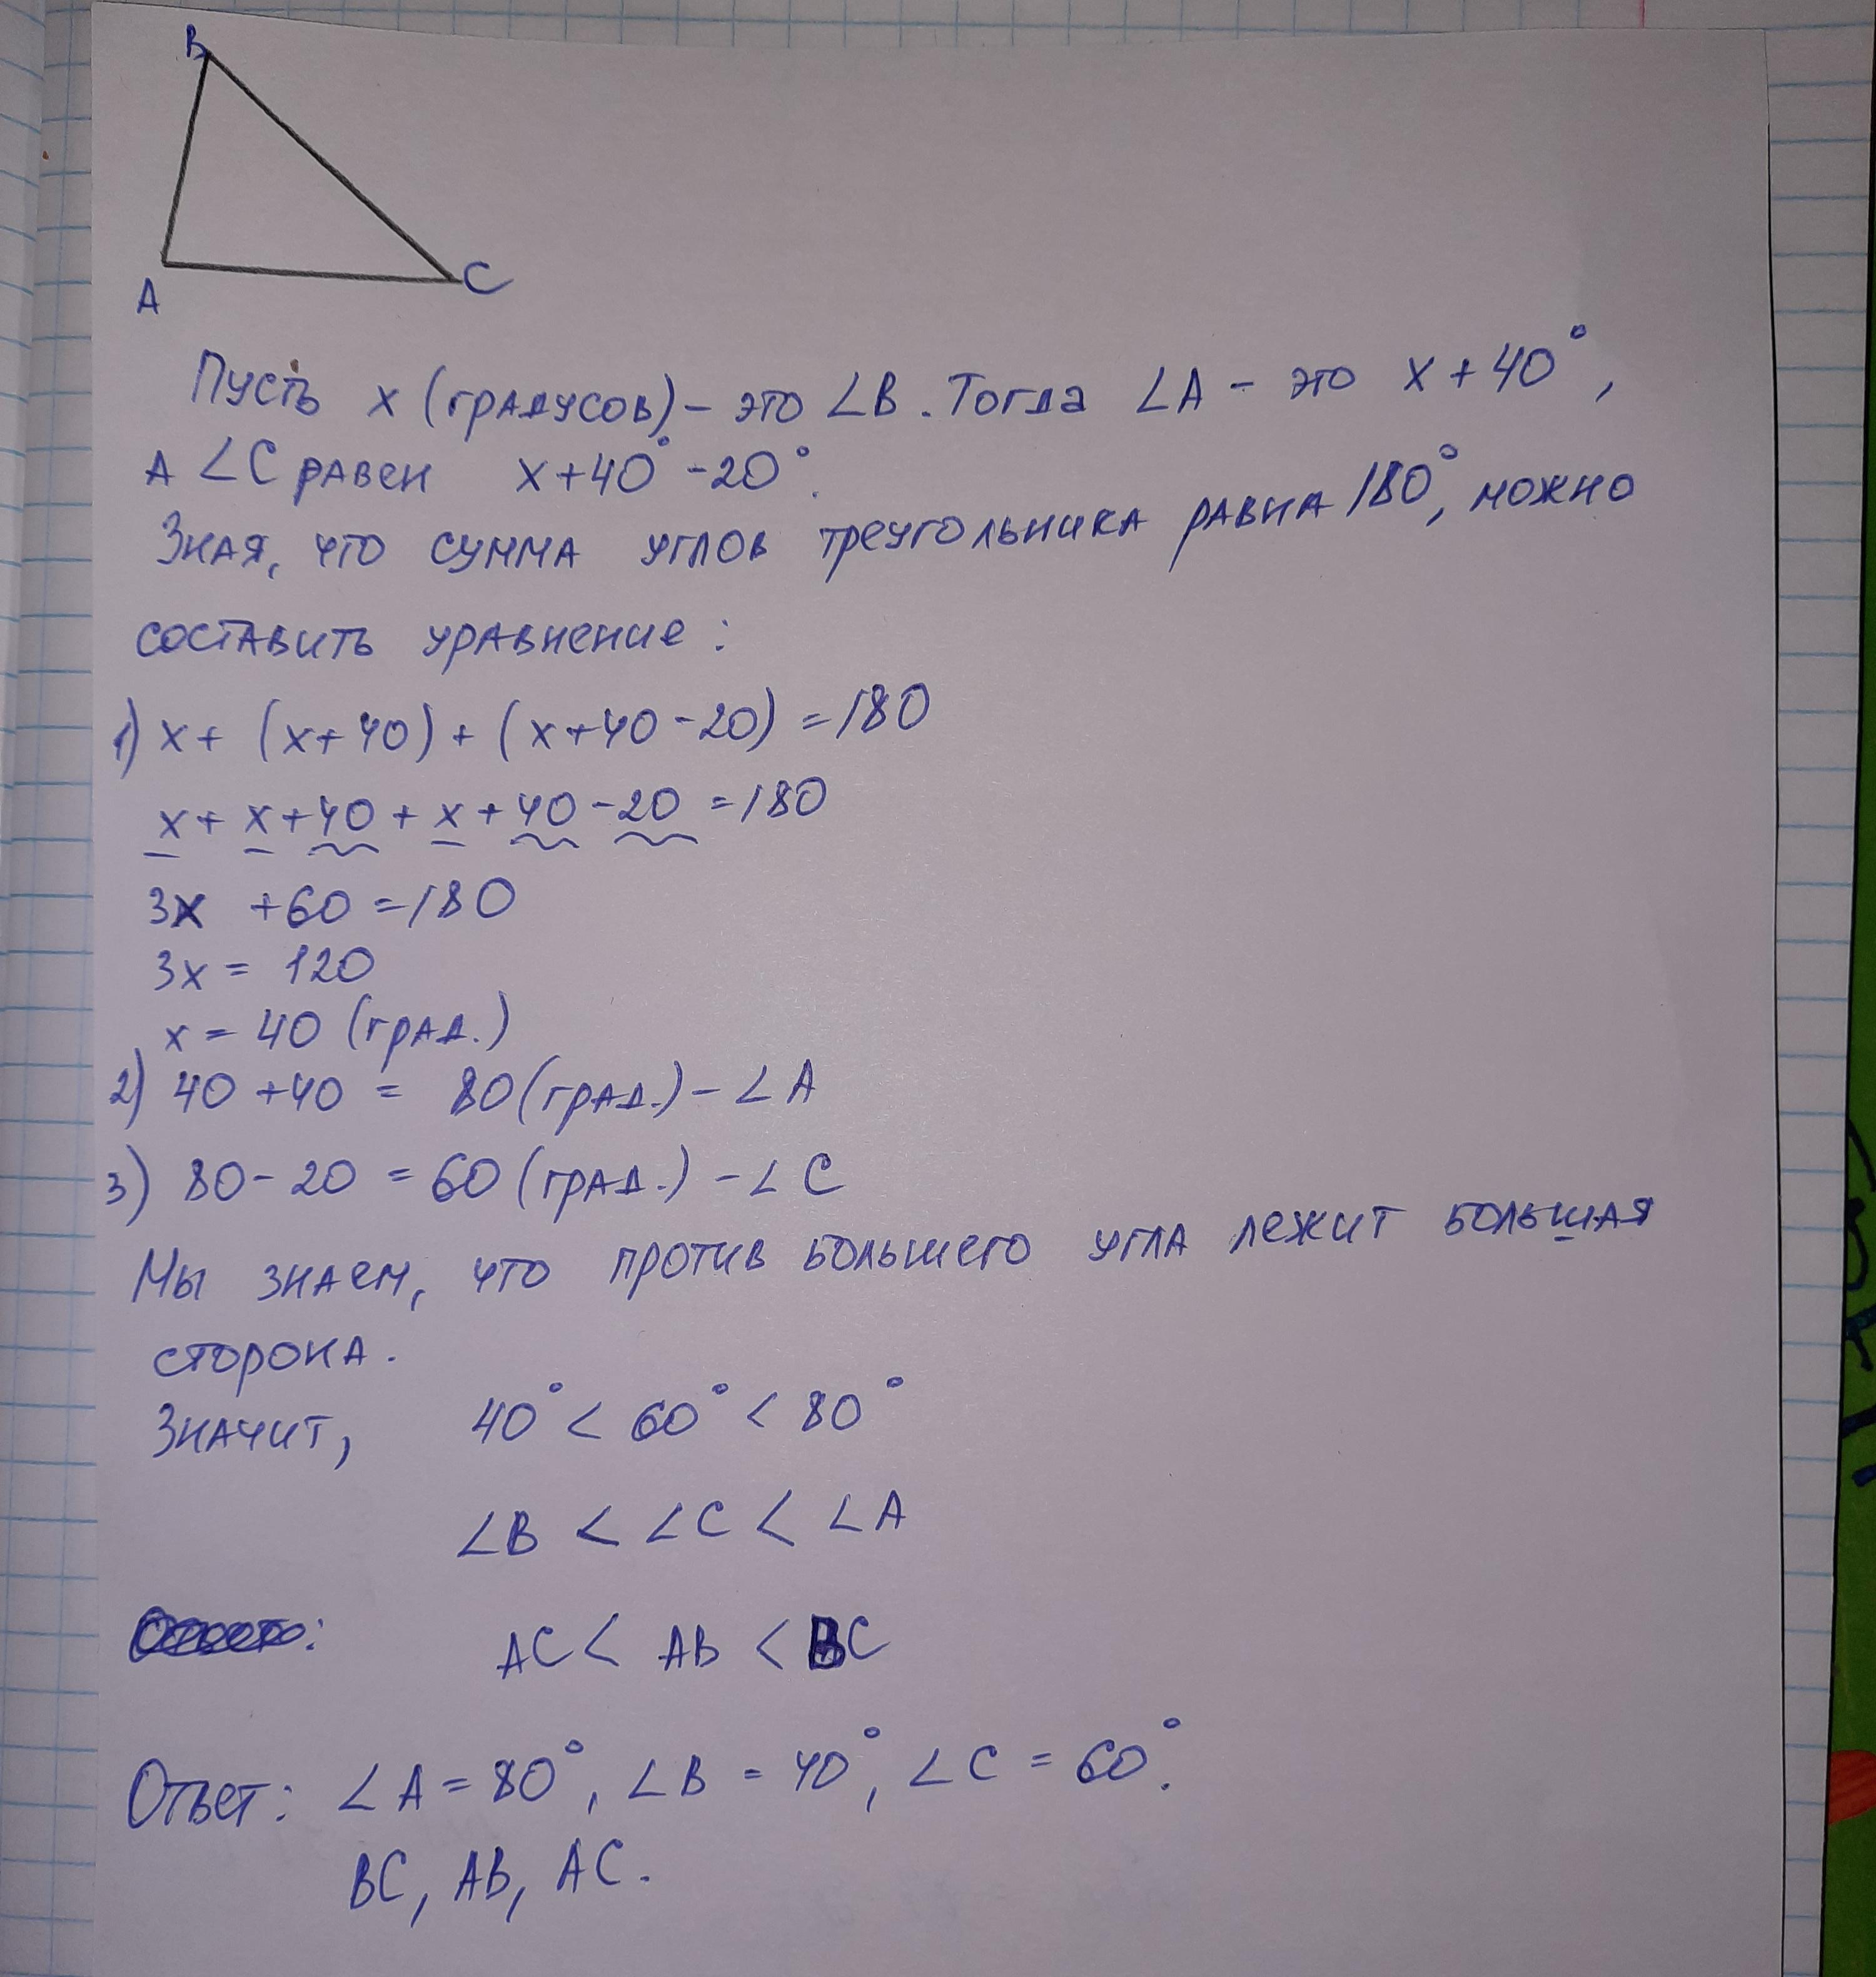 B
A
C
Пусть x (градусов) – это ∠B. Тогда ∠A – это x + 40°,
а ∠C равен x + 40° - 20°.
Зная, что сумма углов треугольника равна 180°, можно
составить уравнение:
1) x + (x + 40) + (x + 40 - 20) = 180
x + x + 40 + x + 40 - 20 = 180
3x + 60 = 180
3x = 120
x = 40 (град.)
2) 40 + 40 = 80 (град.) – ∠A
3) 80 - 20 = 60 (град.) – ∠C
Мы знаем, что против большего угла лежит большая
сторона.
Значит, 40° < 60° < 80°
∠B < ∠C < ∠A
AC < AB < BC
Ответ: ∠A = 80°, ∠B = 40°, ∠C = 60°.
BC, AB, AC.